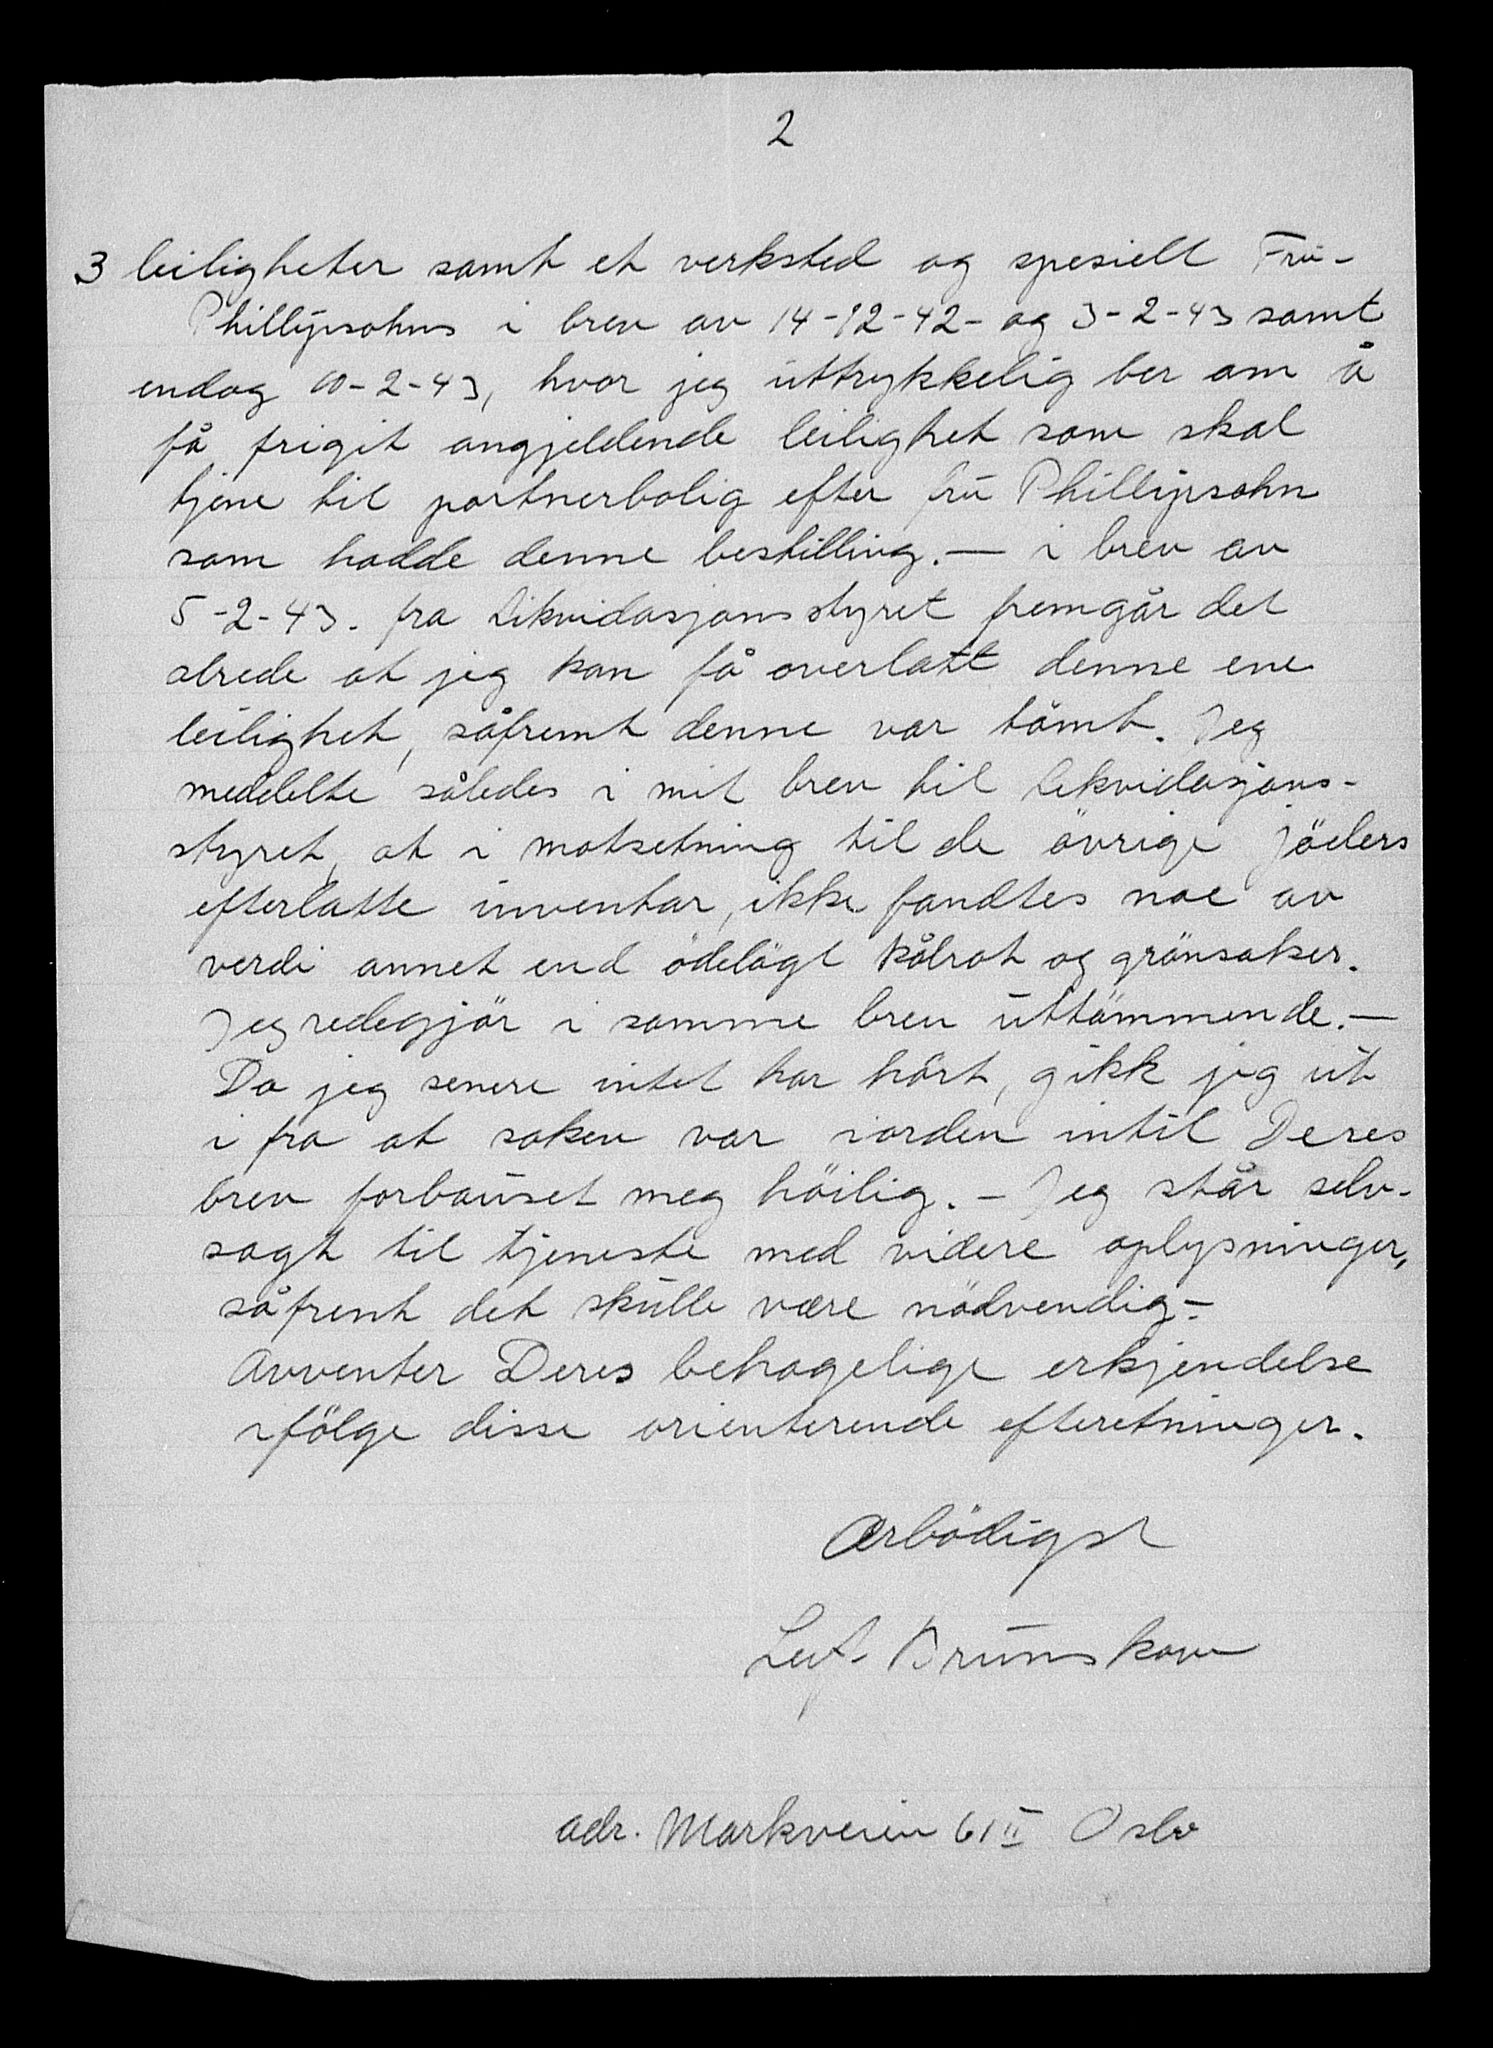 2
3 leiligheter samt et verksted og spesielt Frü-
Phillipsohns i brev av 14-12-42- og 3-2-43 samt
endog 10-2-43, hvor jeg üttrykkelig ber om å
få frigit angjeldende leilighet som skal
tjene til portnerbolig efter frü Phillipsohn
som hadde denne bestilling. — i brev av
5-2-43. fra Likvidasjonsstyret fremgår det
alrede at jeg kan få overlatt denne ene
leilighet, såfremt denne var tömt. Jeg
meddelte således i mit brev til Likvidasjons-
styret, at i motsetning til de övrige jöders
efterlatte inventar, ikke fandtes noe av
verdi annet end ödelägt kålrot og grönsaker.
Jeg redegjör i samme brev üttömmende. —
Da jeg senere intet har hört, gikk jeg üt
i fra at saken var iorden intil Deres
brev forbaüset meg höilig. – Jeg står selv-
sagt til tjeneste med videre oplysninger,
såfremt det skülle være nödvendig –
Avventer Deres behagelige erkjendelse
ifölge disse orienterende efteretninger.
Ærbödigst
Leif Brünskow
adr. Markveien 61 II Oslo